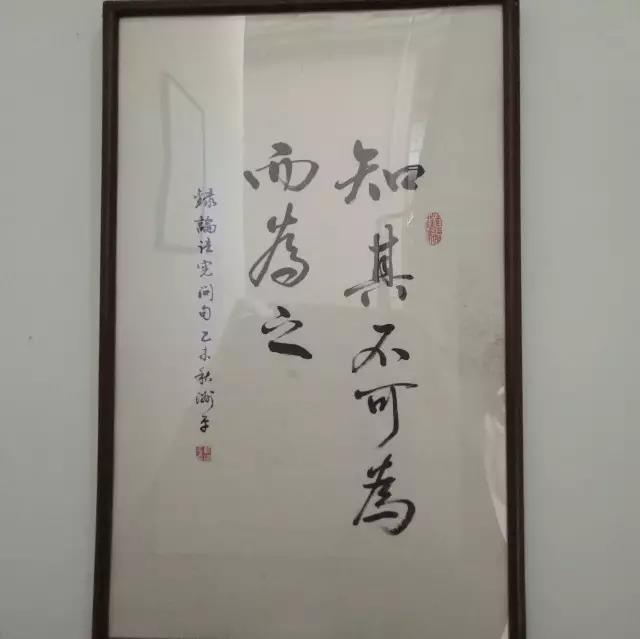 知其不可為
而為之
錄論語憲問句乙未秋洲平